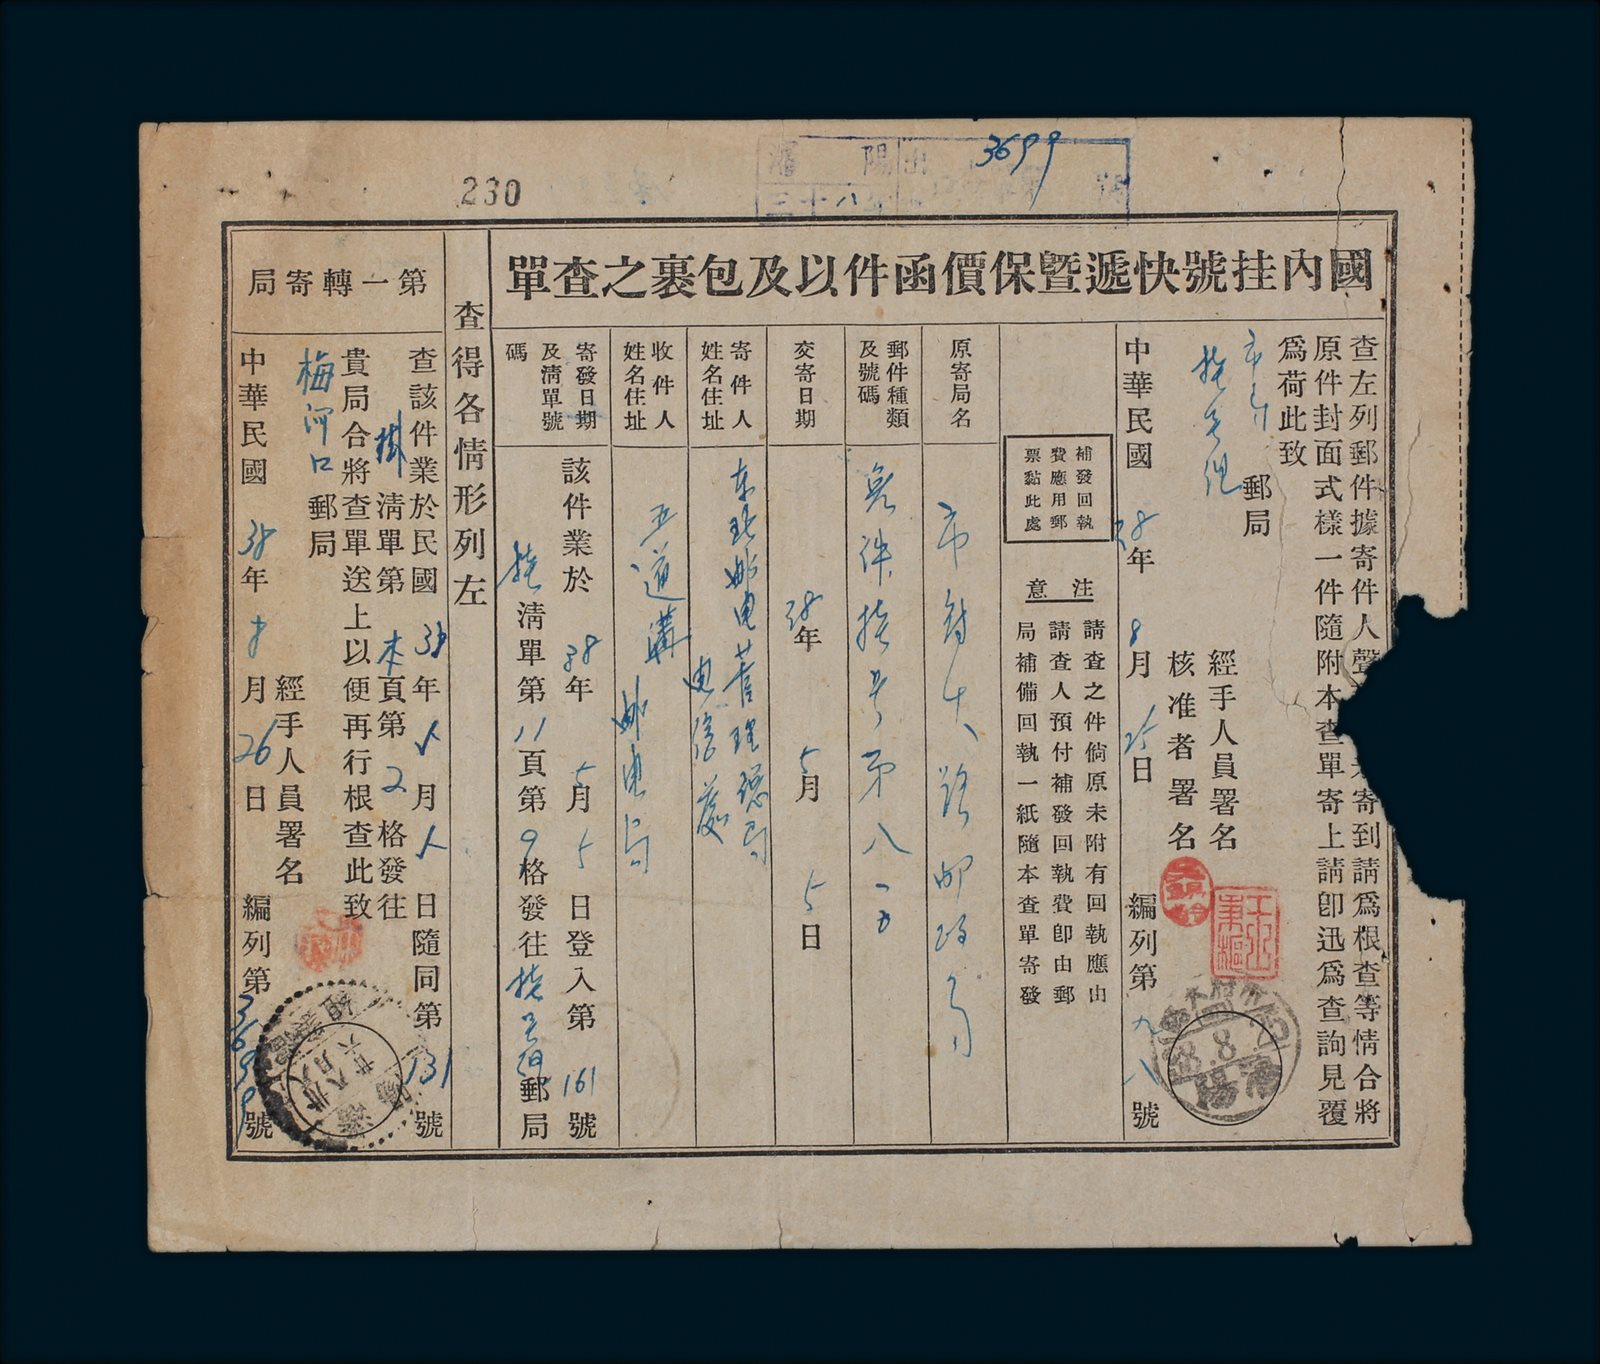 3699
230
瀋陽
三十八年
國內挂號快遞曁保價函件以及包裹之查單
查左列郵件據寄件人聲
寄到請爲根查等情合將
原件封面式樣一件隨附本查單寄上請卽迅爲查詢見覆
爲荷此致
郵局
經手人員署名
核准者署名
中華民國38年8月25日 編列第九八號
補發回執
費應用郵
票黏此處
注意
請查之件倘原未附有回執應由
請查人預付補發回執費卽由郵
局補備回執一紙隨本查單寄發
原寄局名
市府大路邮政局
郵件種類
及號碼
掛号第八一五
交寄日期
38年5月5日
寄件人
姓名住址
东北邮电管理總局
电信處
收件人
姓名住址
五道溝邮电局
寄發日期
及清單號
碼
該件業於38年5月5日登入第161號
清單第11頁第9格發往
郵局
查得各情形列左
第一轉寄局
查該件業於民國38年
月
日隨同第131號
掛清單第本頁第2格發往
貴局合將查單送上以便再行根查此致
梅河口郵局
經手人員署名
中華民國38年
月26日 編列第3699號
瀋陽